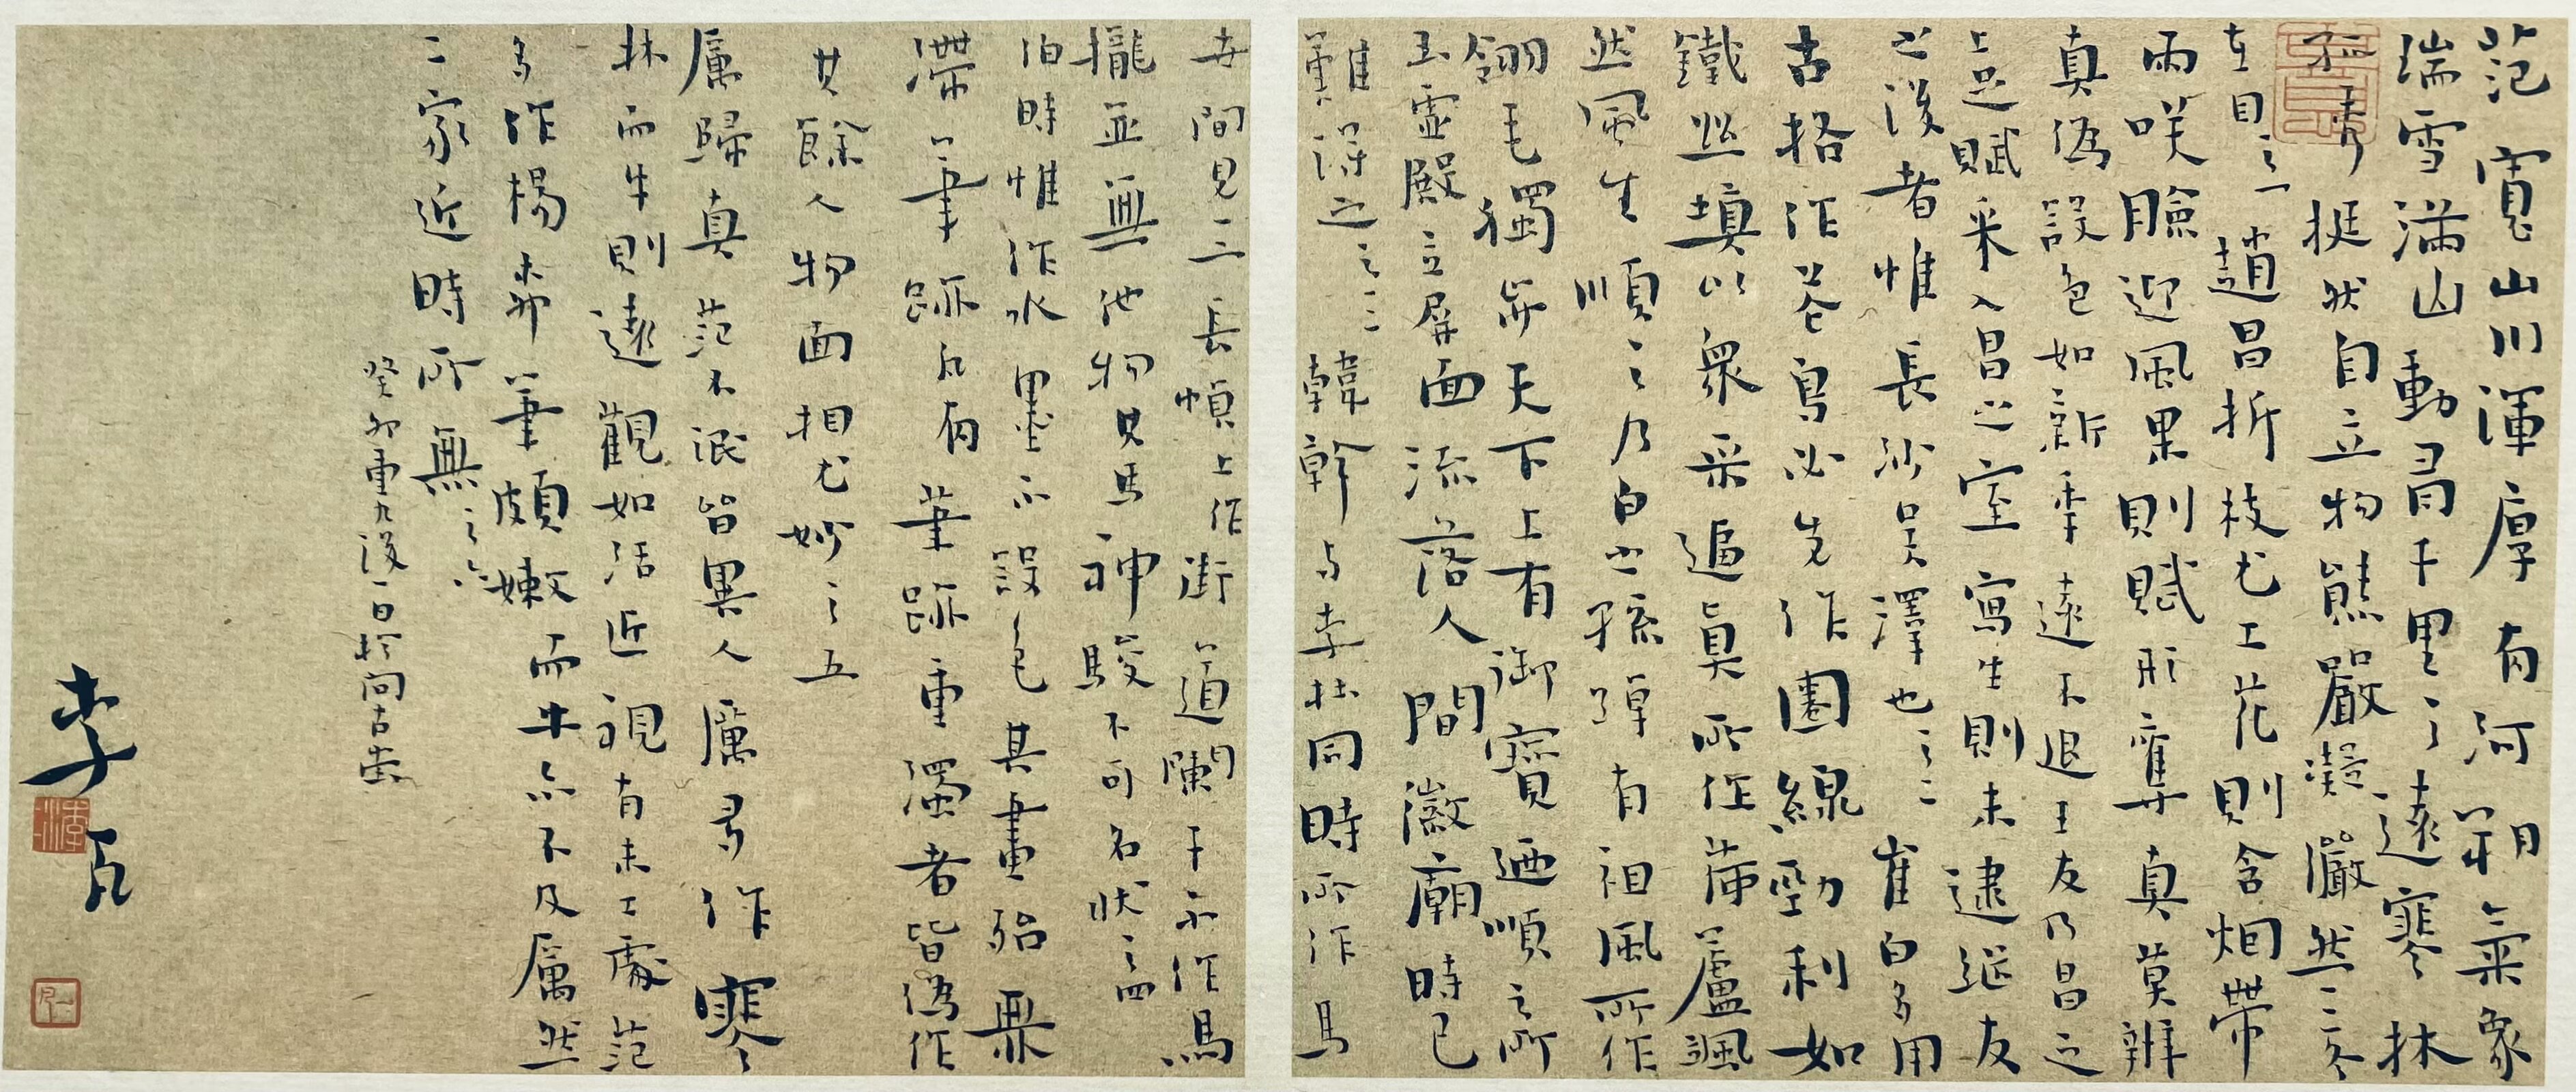 范寬山川渾厚有河朔氣象
瑞雪滿山動有千里之遠寒林
孤秀挺然自立物態嚴凝儼然三冬
在目之一趙昌折枝尤工花則含烟帶
雨咲臉迎風果則賦形奪真莫辨
真偽設色如新年遠不退王友乃昌之
上足賦采入昌之室寫生則未逮逥友
之後者惟長沙吳澤也之二崔白多用
古格作花鳥必先作圈線勁利如
鐵絲填以衆采逼真所作荷蘆颯
然風生順之乃白之孫綽有祖風所作
翎毛獨步天下上有御寶迺順之所
玉靈殿立屏面流落人間徽廟時已
難得之之三韓幹與李杜同時所作馬
世間見二三長幀上作街道闌干亦作馬
攏並無他物其馬神駿不可名狀之四
伯時惟作水墨不設色其畫殆無
滯筆跡凡有筆跡重濁者皆偽作
其餘人物面相尤妙之五
厲歸真范不泯皆異人厲多作寒
林而牛則遠觀如活近視有未工處范
多作楊柳筆頗嫩而牛亦不及厲然
二家近時所無之六
癸卯重九後一日於尚古齋